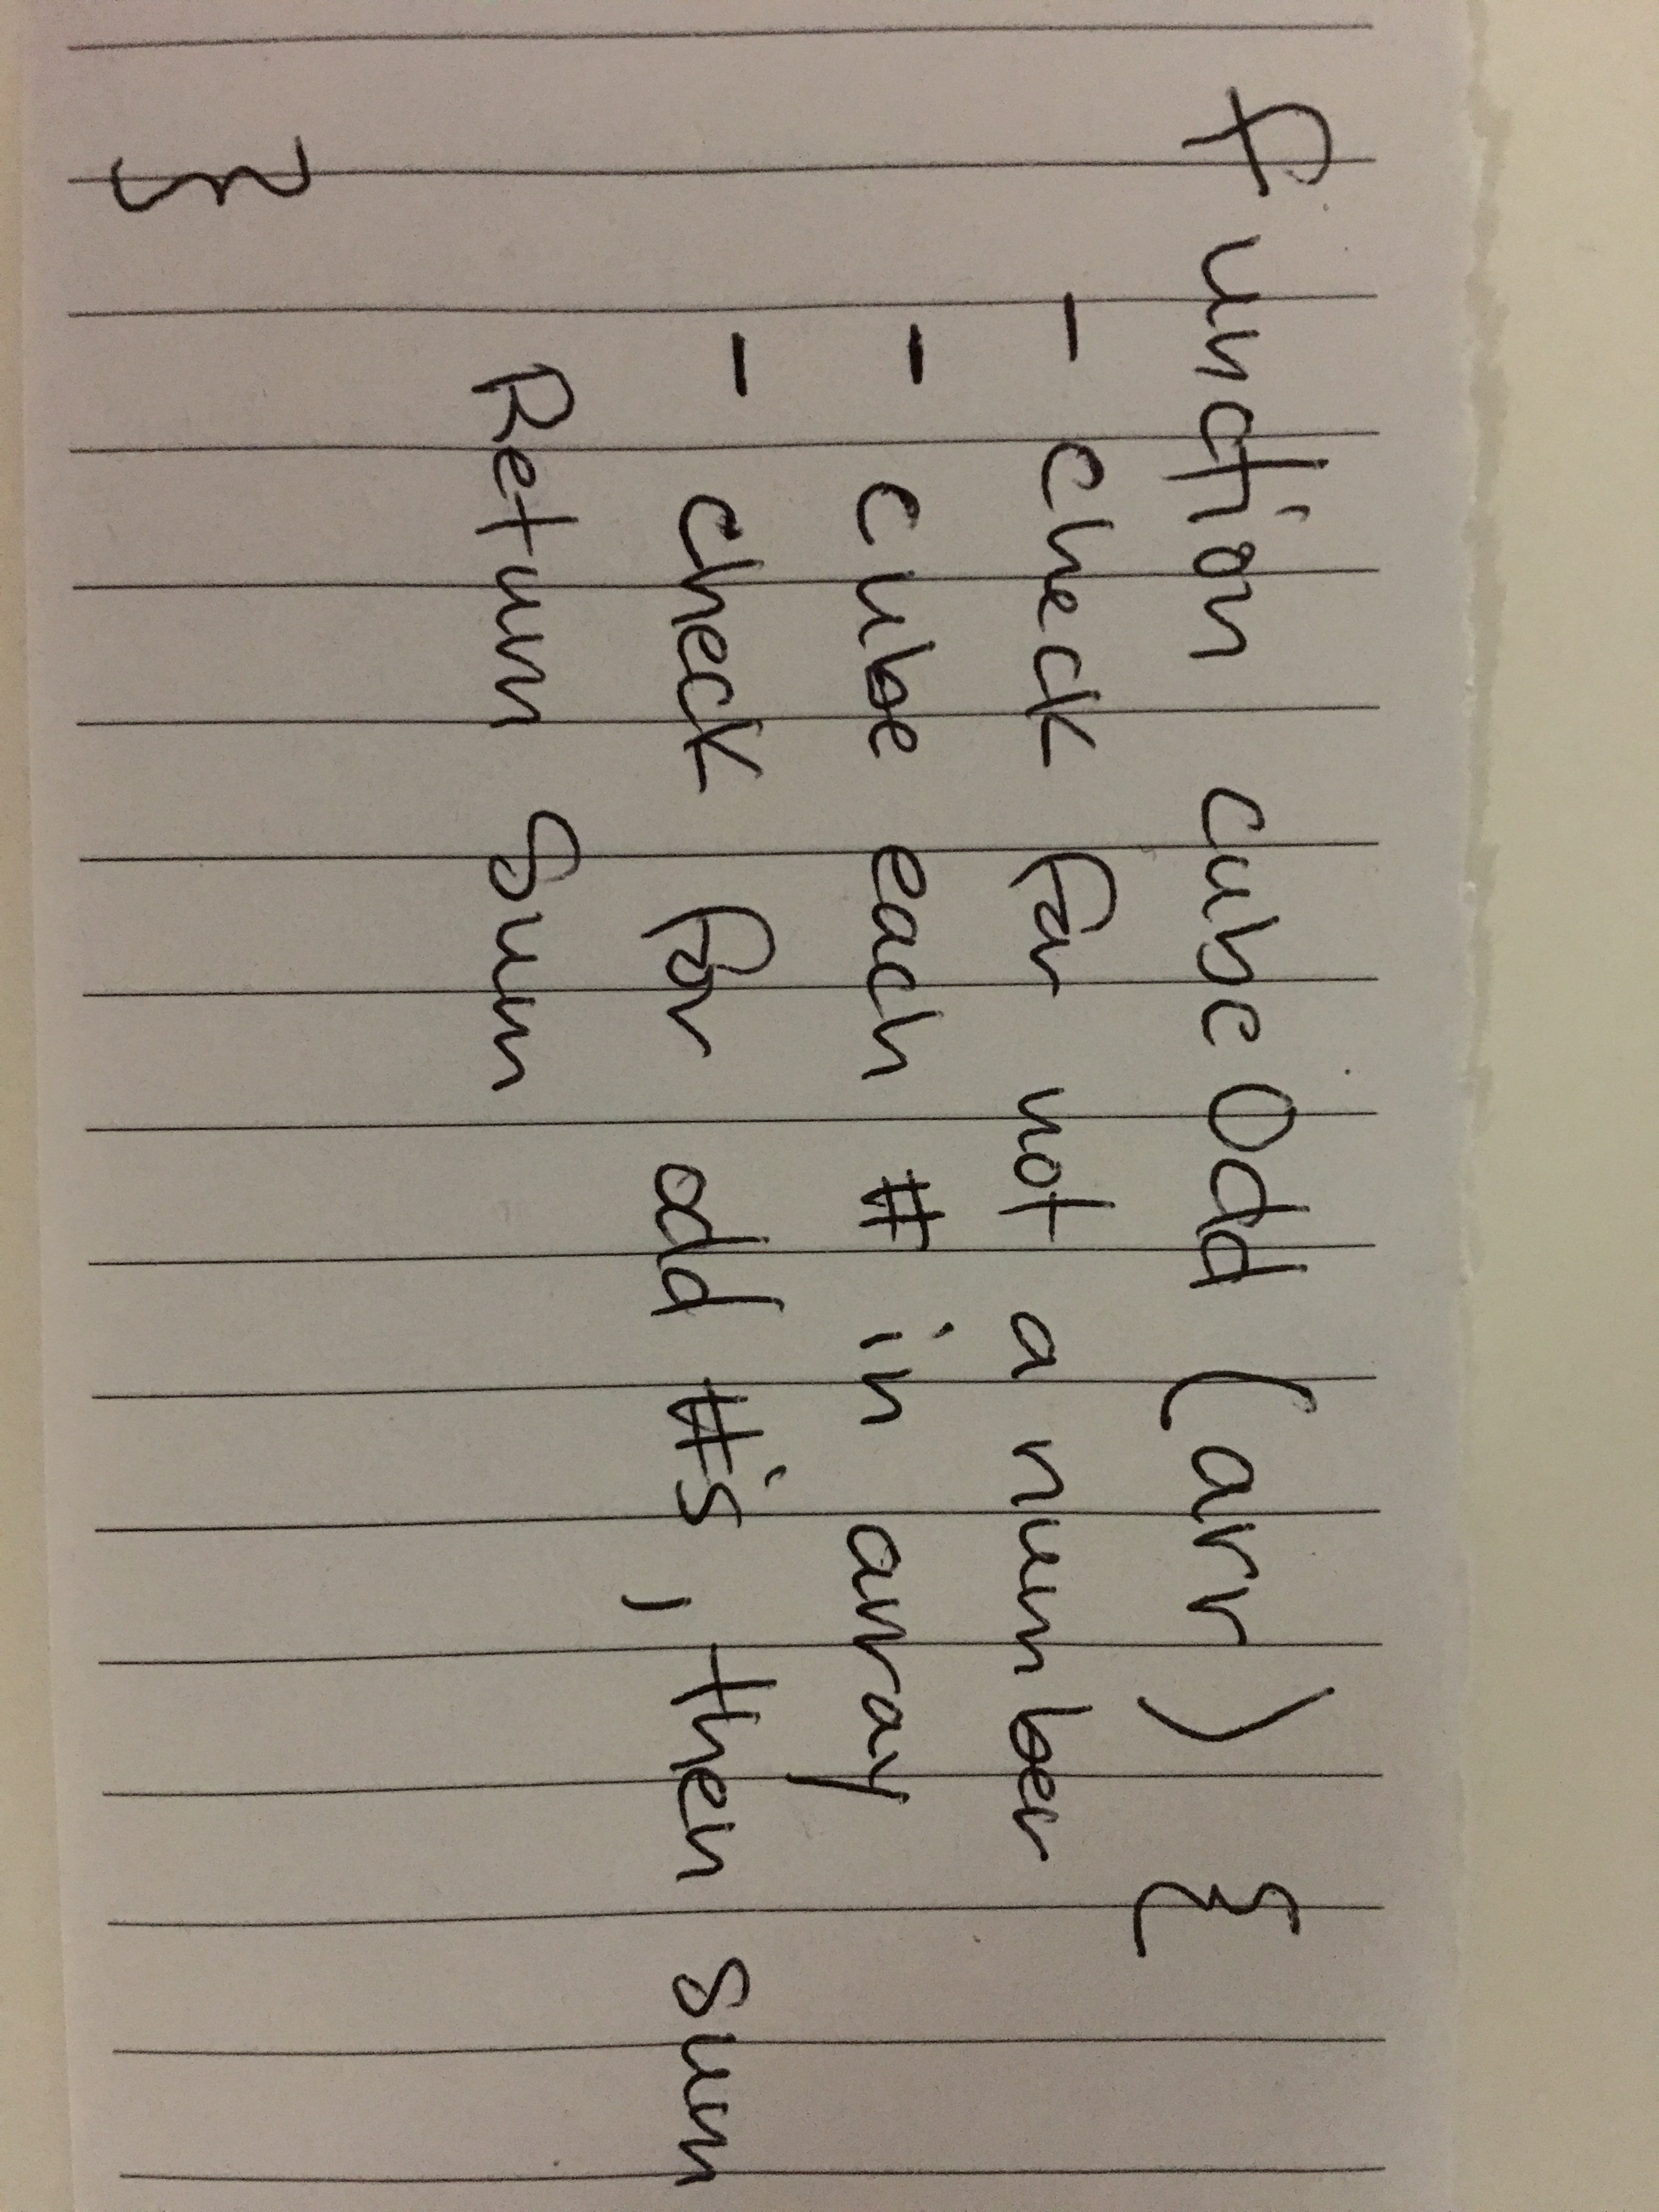 function cubeOdd (arr) {
- check for not a number
- cube each # in array
- check for odd #'s, then sum
Return Sum
}